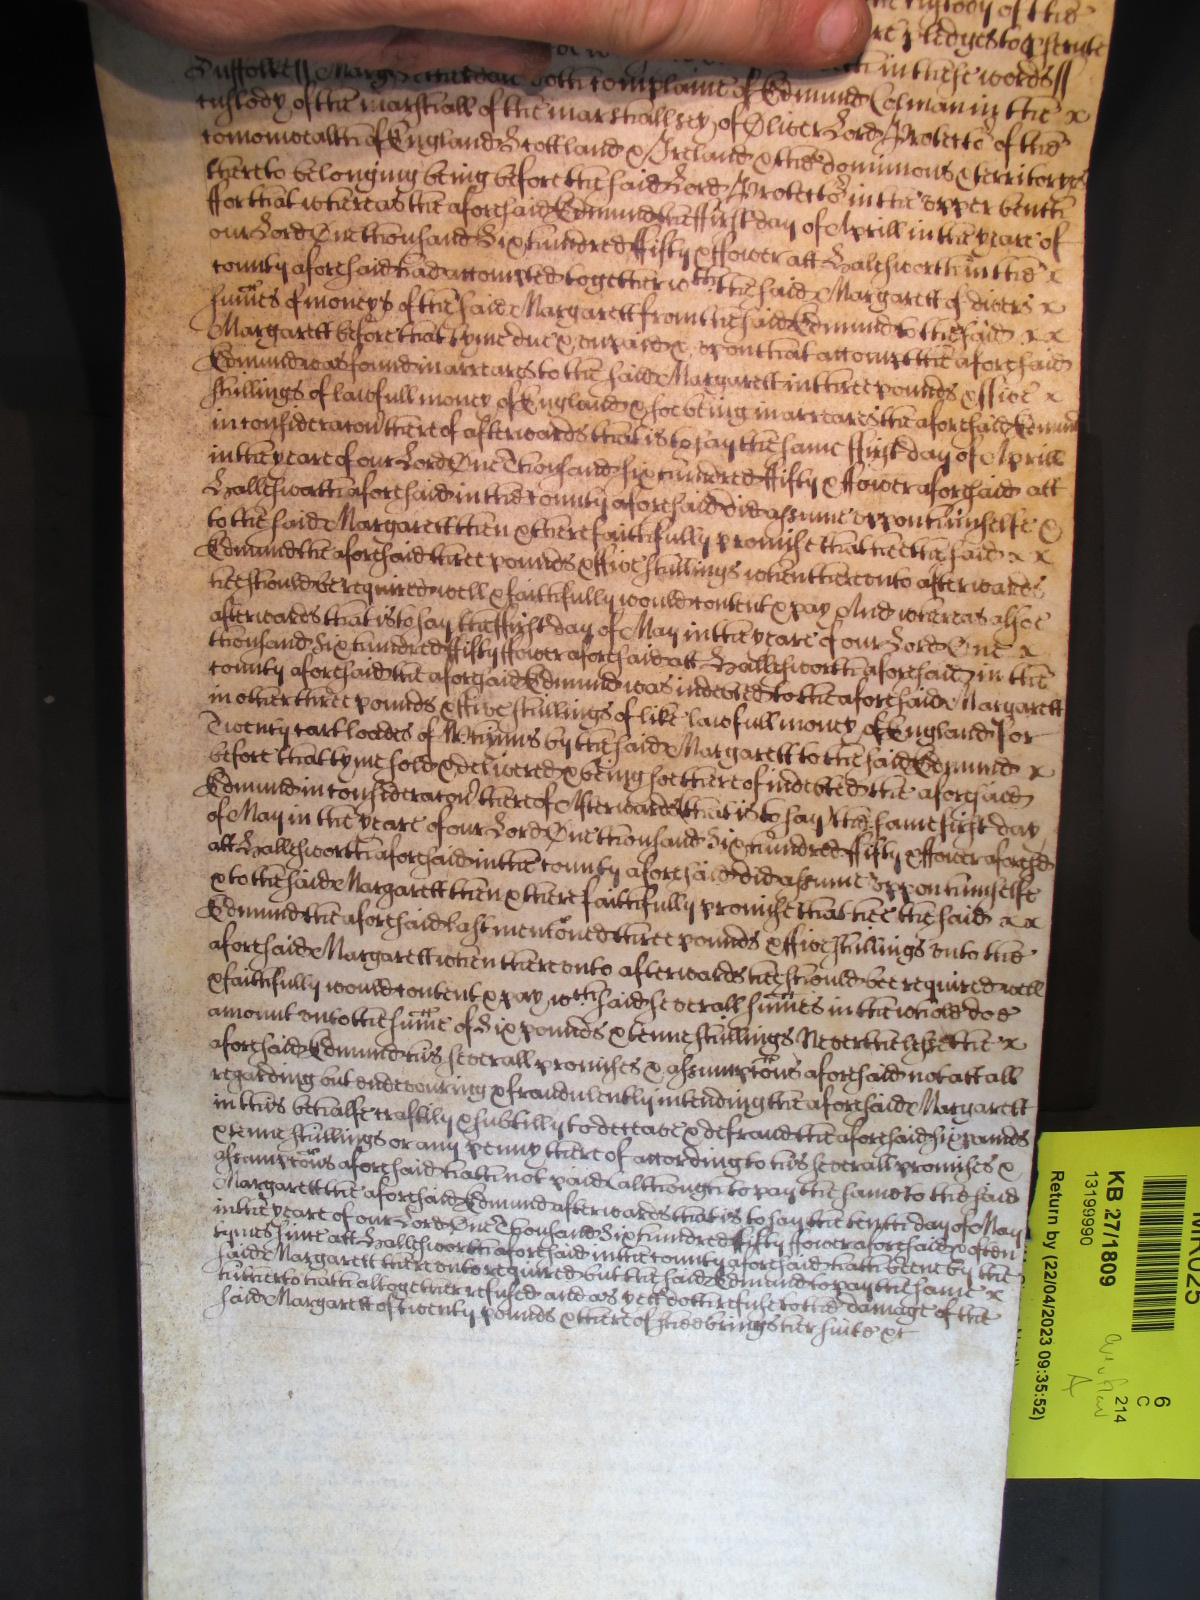 the custody of the
re pledges to p'secute
in these words //
Suffolke // Margarett doth complaine of Edmund Colman in the x
custody of the marshall of the marshallsey of Oliver Lord Protector of the
comonwealth of England Scotland & Ireland & the dominions & territoryes
thereto belonging being before the said Lord Protector in the upper bench
ffor that whereas the aforesaid Edmund the ffirst day of Aprill in the yeare of
our Lord One thousand Six hundred ffifty & ffower att Halesworth in the x
county aforesaid had accompted together wth the said Margarett of divers x
sumes of moneys of the said Margarett from the said Edmund to the said x x
Margarett before that tyme due & unpaid & upon that accompt the aforesaid
Edmund was found in arreares to the said Margarett in three pounds & ffive x
shillings of lawfull money of England & soe being in arreares the aforesaid Edmund
in consideracon thereof afterwards that is to say the same ffirst day of Aprill
in the yeare of our Lord One Thousand Six hundred ffifty & ffower aforesaid att
Hallesworth aforesaid in the county aforesaid did assume uppon himselfe &
to the said Margarett then & there faithfully promise that hee the said x x
Edmund the aforesaid three pounds & ffive shillings when thereunto afterwards
hee should be required well & faithfully would content & pay And whereas alsoe
afterwards that is to say the ffirst day of May in the yeare of our Lord One x
thousand Six hundred ffifty ffower aforesaid att Hallesworth aforesaid in the
county aforesaid the aforesaid Edmund was indebted to the aforesaid Margarett
in other three pounds & ffive shillings of like lawfull money of England for
Twenty cart loades of by the said Margarett to the said Edmund x
before that tyme sold & delivered & being soe thereof indebted the aforesaid
Edmund in consideracon thereof Afterwards that is to say the same first day
of May in the yeare of our Lord One thousand Six hundred ffifty & ffower aforesd
att Hallesworth aforesaid in the county aforesaid did assume uppon himselfe
& to the said Margarett then & there faithfully promise that hee the said x x
Edmund the aforesaid last menconed three pounds & ffive shillings unto the
aforesaid Margarett when thereunto afterwards hee should bee required well
& faithfully would content & pay wch said severall sumes in the whole doe
amount unto the sume of Six pounds & tenne shillings Neverthelesse the x
aforesaid Edmund his severall promises & assumpcons aforesaid not att all
regarding but endevouring & fraudulently intending the aforesaid Margarett
in this behalfe craftily & subtilly to deceave & defraud the aforesaid six pounds
& tenne shillings or any penny thereof according to his severall promises &
assumpcons aforesaid hath not paid although to pay the same to the said
Margarett the aforesaid Edmund afterwards that is to say the tenth day of May
in the yeare of our Lord One Thousand Six hundred ffifty ffower aforesaid & often
tymes since att Hallesworth aforesaid in the county aforesaid hath beene by the
said Margarett thereunto required but the said Edmund to pay the same x
hitherto hath altogether refused and as yett doth refuse to the damage of the
said Margarett of twenty pounds & thereof shee brings her suite &c
KB 27/1809
1319990
Return by (22/04/2023 09:35:52)
6
C
214
A